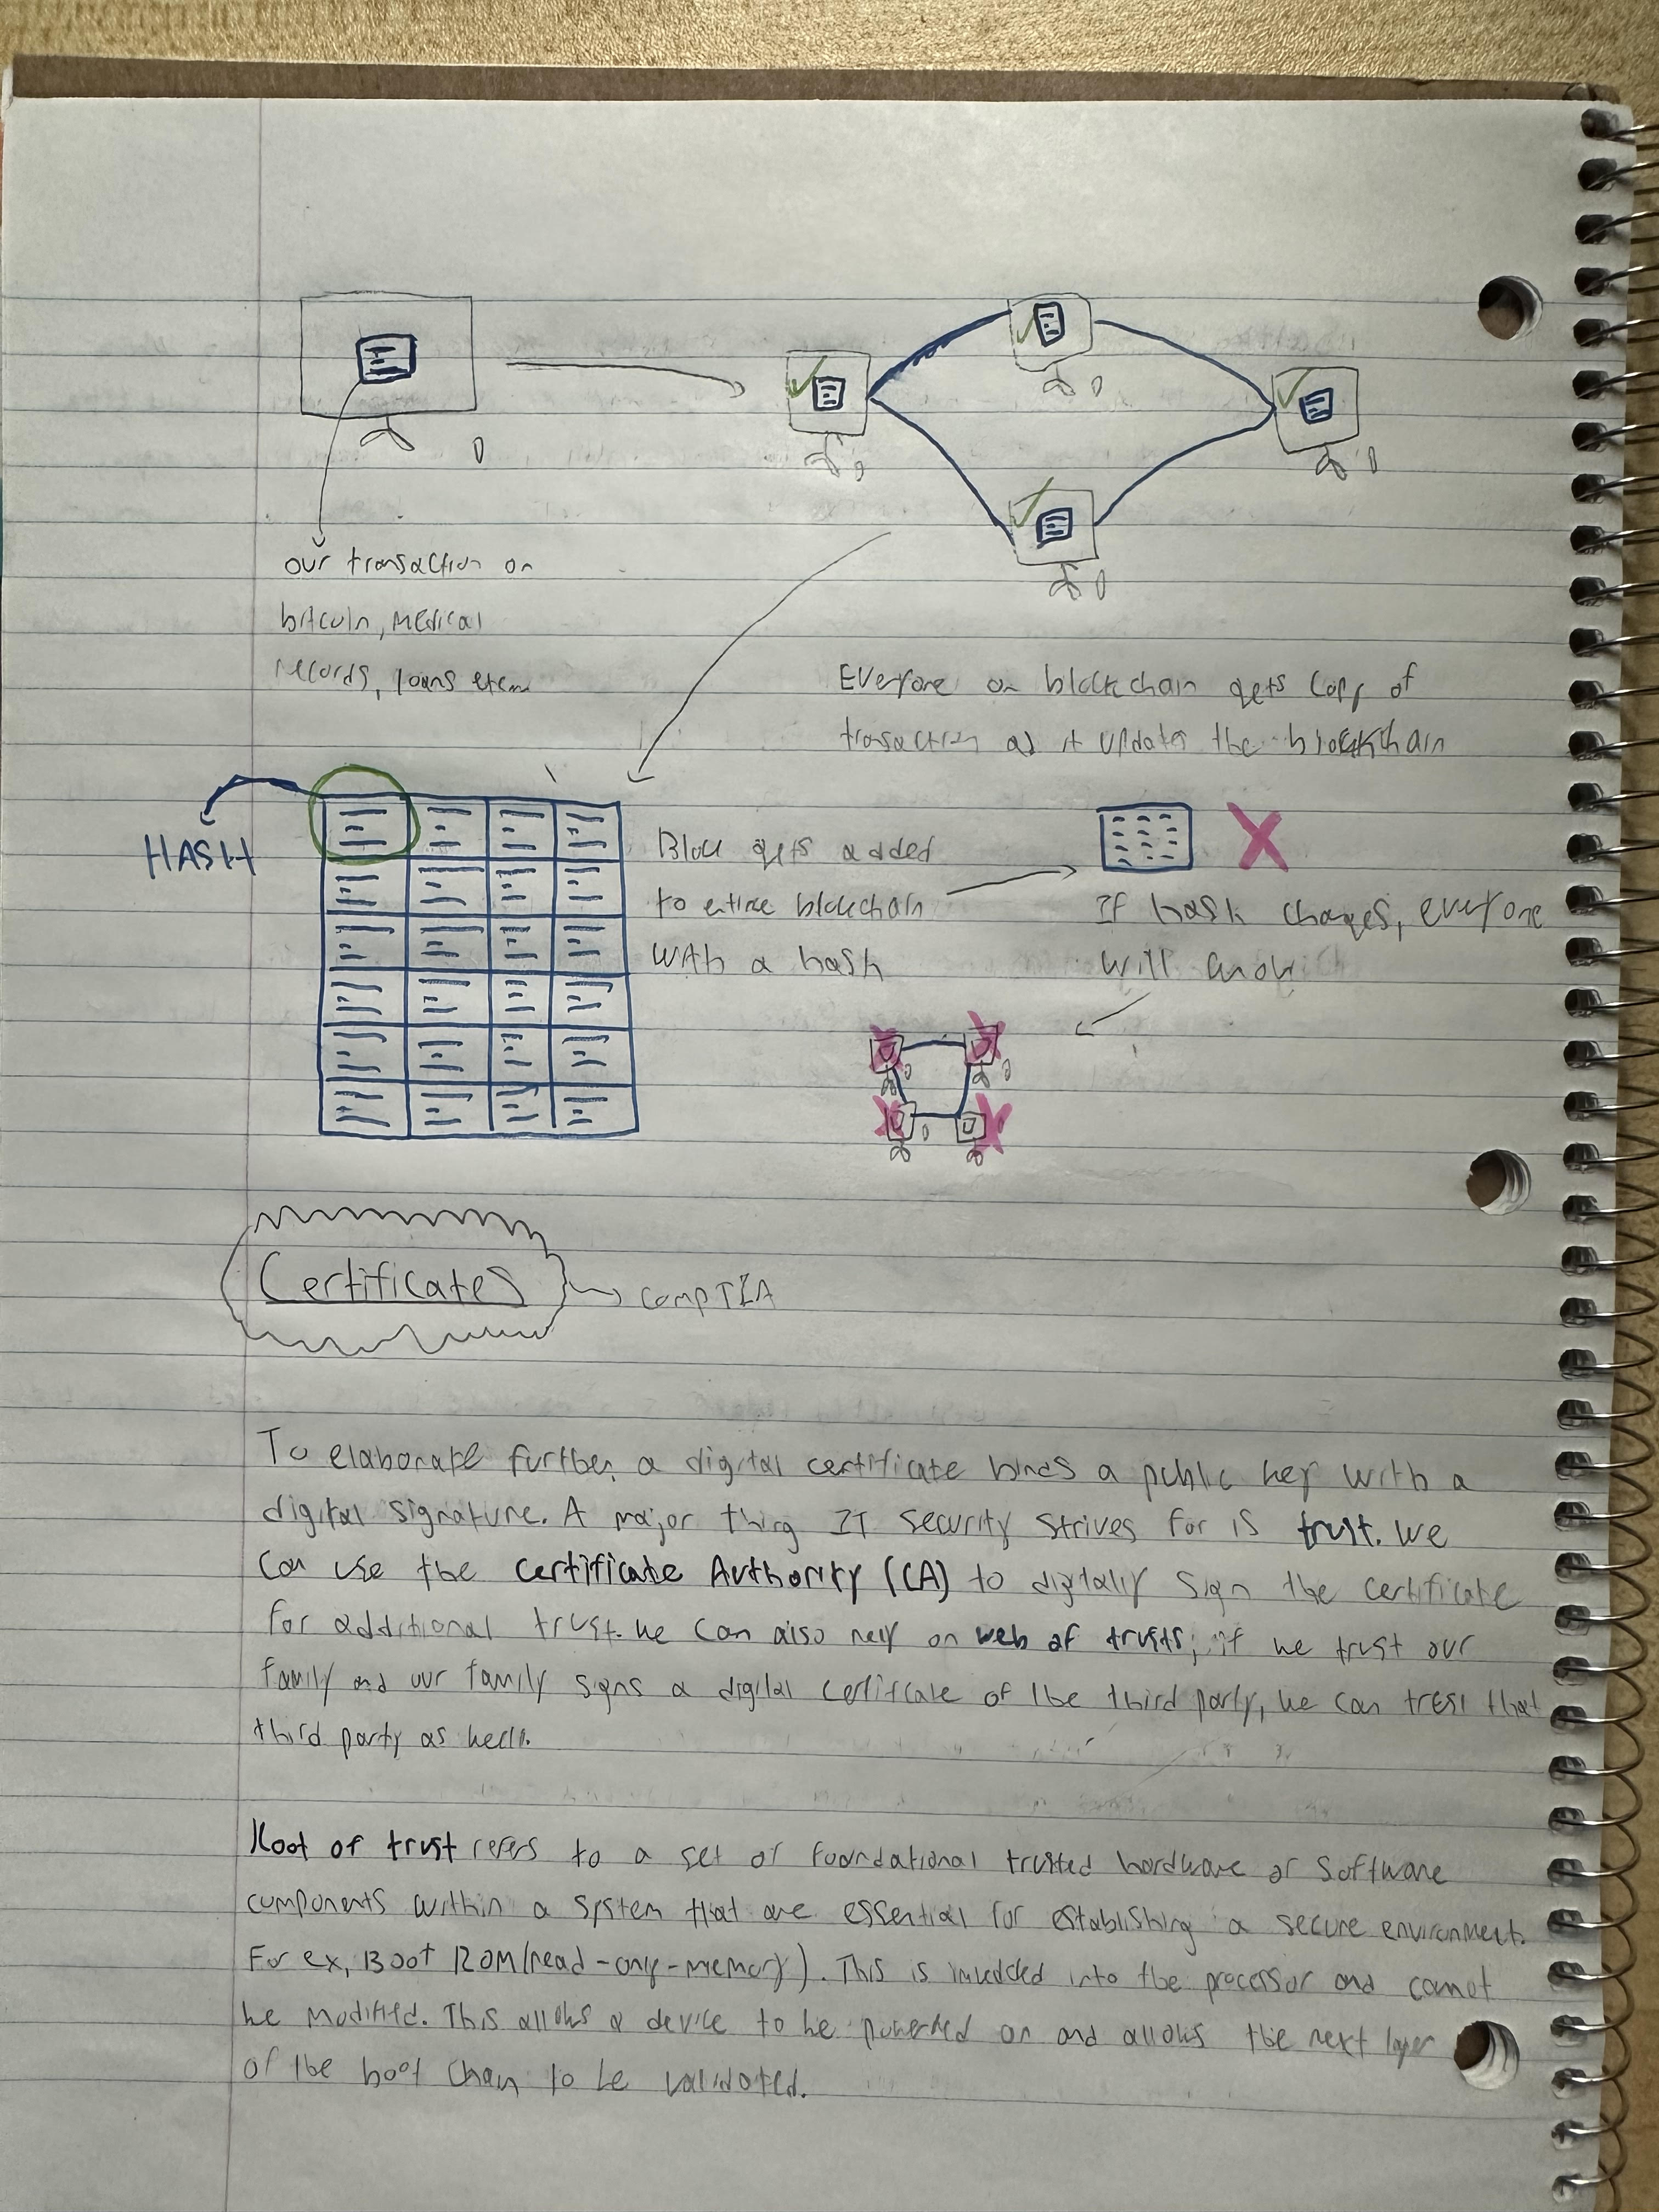 our transaction on
bitcoin, medical
records, loans
Everyone on blockchain gets copy of
transaction as it updates the blockchain
HASH
Block gets added
to entire blockchain
with a hash
If hash changes, everyone
will know
Certificates
CompTIA
To elaborate further, a digital certificate binds a public key with a
digital signature. A major thing IT security strives for is trust. We
can use the certificate Authority (CA) to digitally sign the certificate
for additional trust. We can also rely on web of trusts; if we trust our
family and our family signs a digital certificate of the third party, we can trust that
third party as well.
Root of trust refers to a set of foundational trusted hardware or software
components within a system that are essential for establishing a secure environment.
For ex, Boot ROM (read-only-memory). This is into the processor and cannot
be modified. This allows a device to be powered on and allows the next layer
of the boot chain to be validated.